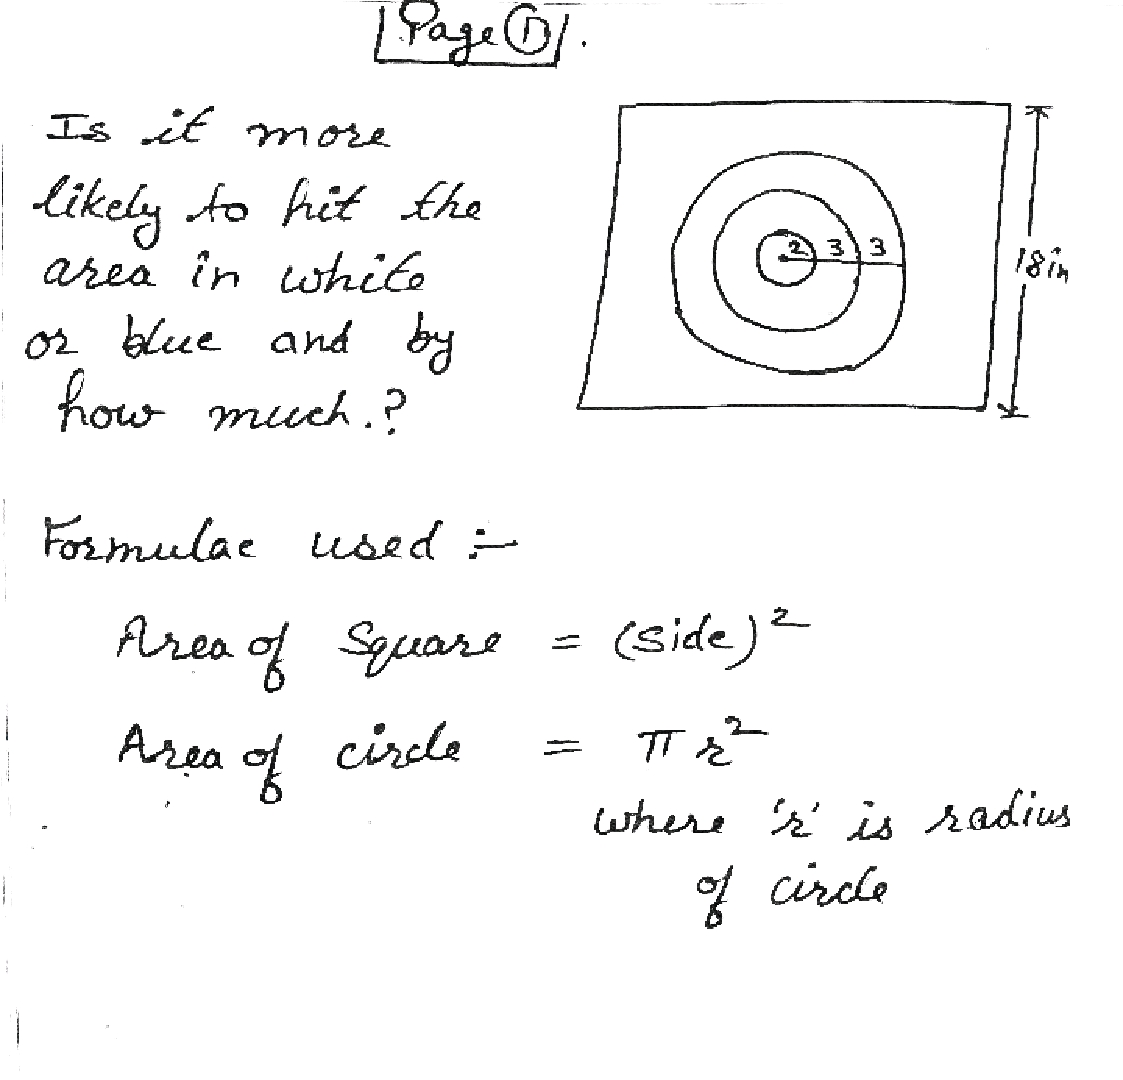 Page ①.
Is it more
likely to hit the
area in white
or blue and by
how much.?
2 3 3
18in
Formulae used :-
Area of Square = (side)²
Area of circle = πr²
where 'r' is radius
of circle